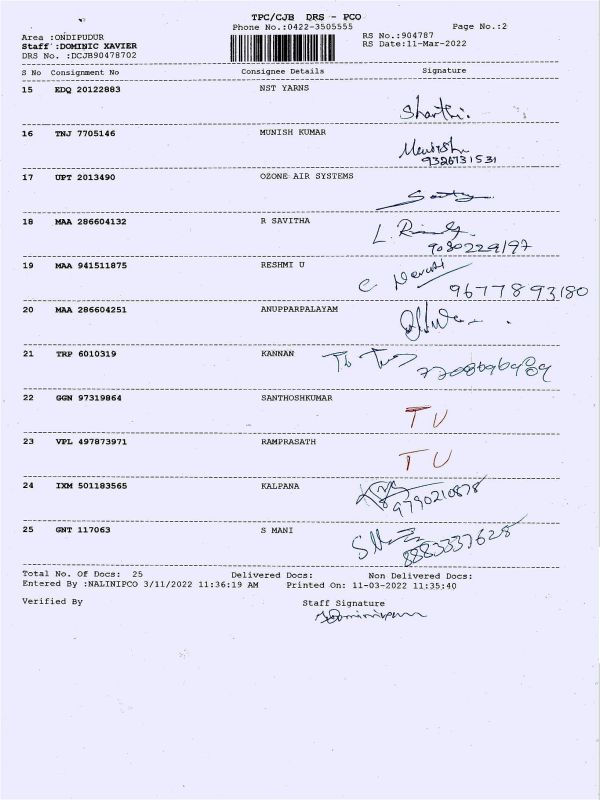 TPC/CJB DRS - PCO
Phone No.:0422-3505555 Page No.:2
Area :ONDIPUDUR RS No.:904787
Staff :DOMINIC XAVIER RS Date:11-Mar-2022
DRS No. :DCJB90478702
S No Consignment No Consignee Details Signature
15 EDQ 20122883 NST YARNS
16 TNJ 7705146 MUNISH KUMAR
9326731531
17 UPT 2013490 OZONE AIR SYSTEMS
18 MAA 286604132 R SAVITHA
9080229197
19 MAA 941511875 RESHMI U
9677893180
20 MAA 286604251 ANUPPARPALAYAM
21 TRP 6010319 KANNAN
22 GGN 97319864 SANTHOSHKUMAR TU
23 VPL 497873971 RAMPRASATH TU
24 IXM 501183565 KALPANA
9790210878
25 GNT 117063 S MANI
8883337628
Total No. Of Docs: 25 Delivered Docs: Non Delivered Docs:
Entered By :NALINIPCO 3/11/2022 11:36:19 AM Printed On: 11-03-2022 11:35:40
Verified By Staff Signature